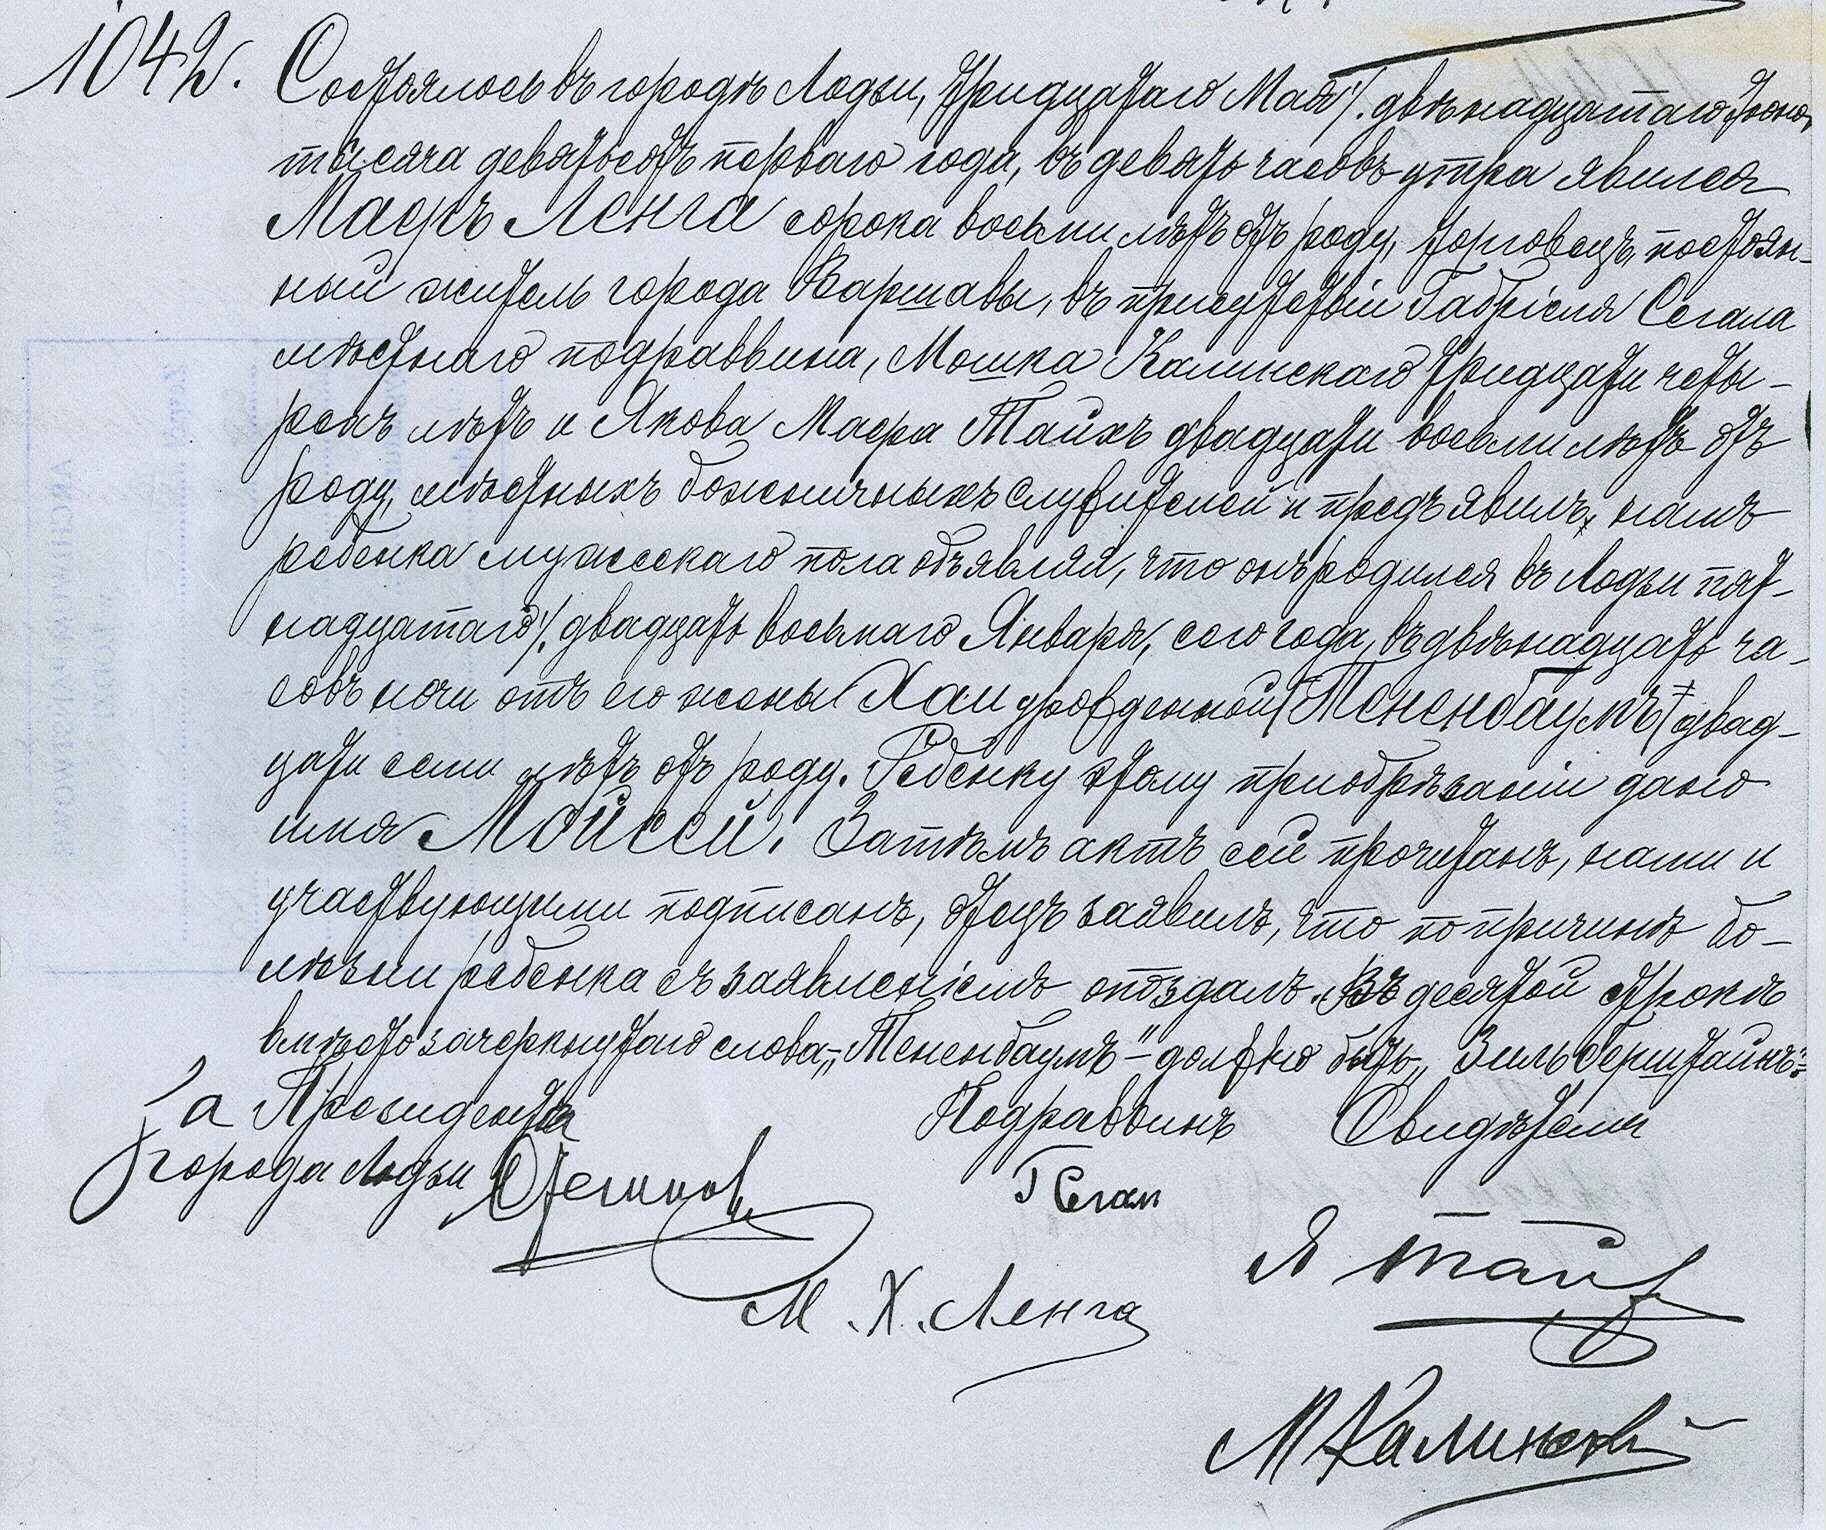 1042. Состоялось въ городѣ Лодзи, тридцатаго Мая /. двѣнадцатаго Іюня
тысяча девятьсотъ перваго года, въ девять часовъ утра явился
Маеръ Ленга сорока восьми лѣтъ отъ роду, торговецъ, постоян-
ный житель города Варшавы, въ присутствіи Габріеля Сегала
мѣстнаго подраввина, Мошка Калинскаго тридцати четы-
рехъ лѣтъ и Якова Маера Тайхъ двадцати восьми лѣтъ отъ
роду, мѣстныхъ божничныхъ служителей и предъявилъ намъ
ребенка мужескаго пола объявляя, что онъ родился въ Лодзи пят-
надцатаго /. двадцать восьмаго Января, сего года, въ двѣнадцать ча-
совъ ночи отъ его жены Хаи урожденной Тененбаумъ двад-
цати семи лѣтъ отъ роду. Ребенку этому при обрѣзаніи дано
имя Мойсей. Затѣмъ актъ сей прочитанъ, нами и
участвующими подписанъ, отецъ заявилъ, что по причинѣ бо-
лѣзни ребенка съ заявленіемъ опоздалъ. Въ десятой строкѣ
вмѣсто зачеркнутаго слова „Тененбаумъ" – должно быть „Зильберштайнъ".
За Президента
города Лодзи
Подраввинъ
Свидѣтели
Г Сегал
Я Тайх
М. Х. Ленга
М Калинский